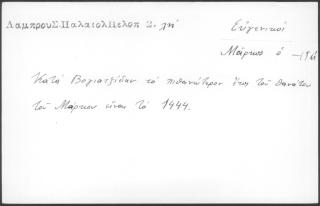 Λαμπρου Σ. Παλαιολ Πελοπ 2. λη'
Εὐγενικοί
Μάρκος ὁ
Κατὰ Βογιατζίδην τὸ πιθανώτερον ἔτος τοῦ θανάτου
τοῦ Μάρκου εἶναι τὸ 1444.